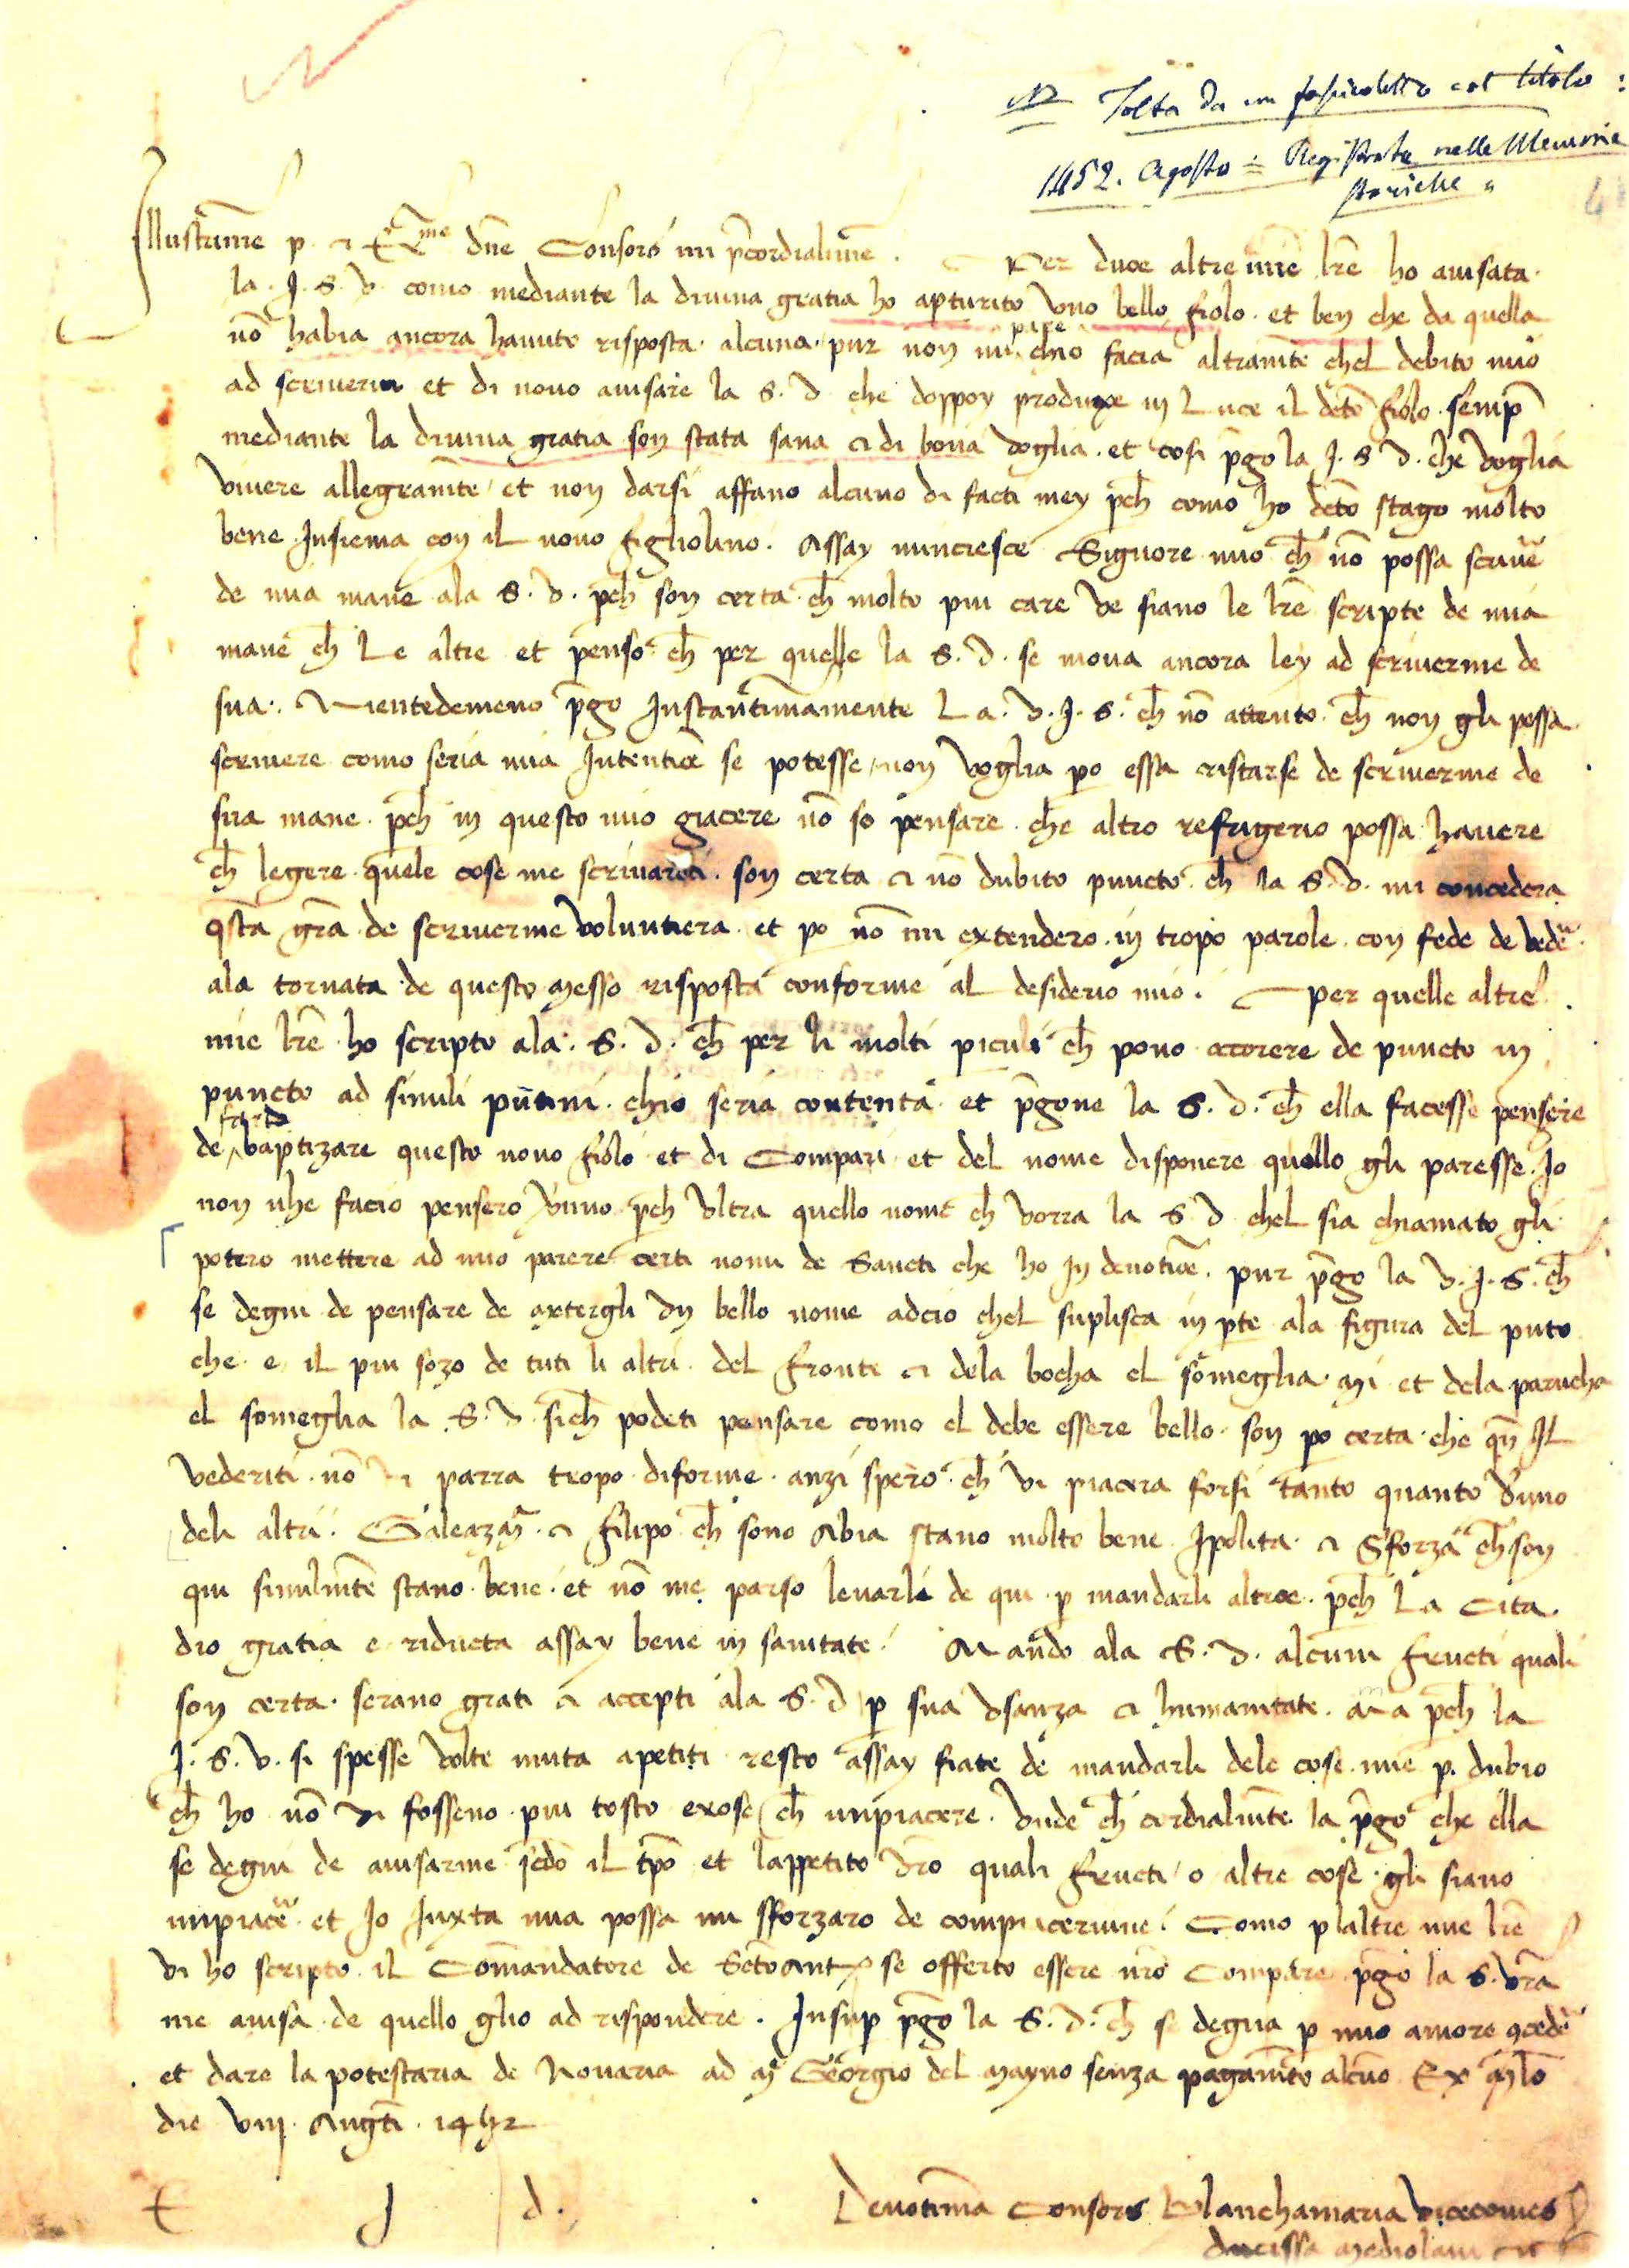 NB Tolta da un fascicoletto col titolo:
1452. Agosto = Registrate nelle Memorie
storiche "
Illustrissime p. et Ex.me dne Consors mi precordialissime. Per duoe altre mie lre ho auisata
la. J. S. V. como mediante la diuina gratia ho apturito vno bello fiolo. et ben che da quella
nō habia ancora hauuto risposta alcuna. pur non mi pare chio facia altramte chel debito mio
ad scriueria et di nouo auisare la S. V. che doppoy produxe in Luce il deto fiolo. semp
mediante la diuina gratia son stata sana et di bona voglia. et cosi pgo la J. S. V. che voglia
viuere allegramte et non darsi affano alcuno di facti mey pch como ho deto stago molto
bene Insiema con il nouo figliolino. Assay mincresce Signore mio ch nō possa scriue
de mia mane ala S. V. pch son certa ch molto piu care ve siano le lre scripte de mia
mane ch Le altre et penso ch per quelle la S. V. se moua ancora ley ad scriuerme de
sua. Nientedemeno pgo Instantimamente La. V. J. S. ch nō attento ch non gli possa
scriuere como seria mia Intentioe se potesse, non voglia po essa ristarse de scriuerme de
sua mane. pch in questo mio giacere nō so pensare che altro refrigerio possa hauere
ch legere quele cose me scriuareti. son certa et nō dubito puncto ch la S. V. mi concedera
qsta gra de scriuerme voluntiera et po nō mi extendero in tropo parole con fede de vede
ala tornata de questo messo risposta conforme al desiderio mio. Per quelle altre
mie lre ho scripto ala. S. V. ch per li molti piculi ch pono occorere de puncto in
puncto ad simili putini. chio seria contenta et pgone la S. V. ch ella facesse pensere
de fare baptizare questo nouo fiolo et di Compari et del nome disponere quello gli paresse. Io
non nhe facio pensero vnno pch vltra quello nome ch vorra la S. V. chel sia chiamato gli
potero mettere ad mio parere certi nomi de Sancti che ho In deuotioe. pur pgo la V. J. S. ch
se degni de pensare de mettergli vn bello nome adcio chel suplisca in pte ala figura del puto
che e il piu sozo de tuti li altri. del fronte et dela bocha el someglia mi et dela parucha
el someglia la S. V. sich podeti pensare como el debe essere bello. son po certa che qn Il
vederiti nō vi parra tropo diforme. anzi spero ch vi piacera forsi tanto quanto vuno
deli altri. Galeazm. et Filipo ch sono Abia stano molto bene Ipolita et Sforza ch son
qui similmte stano bene. et nō me parso leuarli de qui p mandarli altroe. pch La Cita
dio gratia e riducta assay bene in sanitate. Mando ala S. V. alcuni fructi quali
son certa serano grati et accepti ala S. V. p sua vsanza et humanitate. ma pch la
J. S. V. si spesse volte muta apetiti resto assay fiate de mandarli dele cose mie p. dubio
ch ho nō vi fosseno piu tosto exose ch impiacere. vnde ch cordialmte la pgo che ella
se degni de auisarme sedo il tpo et lappetito vro quali fructi o altre cose gli siano
impiace et Io Iuxta mia possa mi sforzaro de compiacerime. Como p laltre mie lre
vi ho scripto il Comandatore de Scto Anto se offerto essere nro Compare pgo la S. vra
me auisa de quello glio ad rispondere. Insup pgo la S. V. ch se degna p mio amore ccede
et dare la potestaria de Nouaria ad m. Georgio del mayno senza pagamto alcuo Ex mlo
die viij. Augti. 1452
E J d.
Deuotima Consors Blanchamaria vicecomes
ducissa mediolani etc